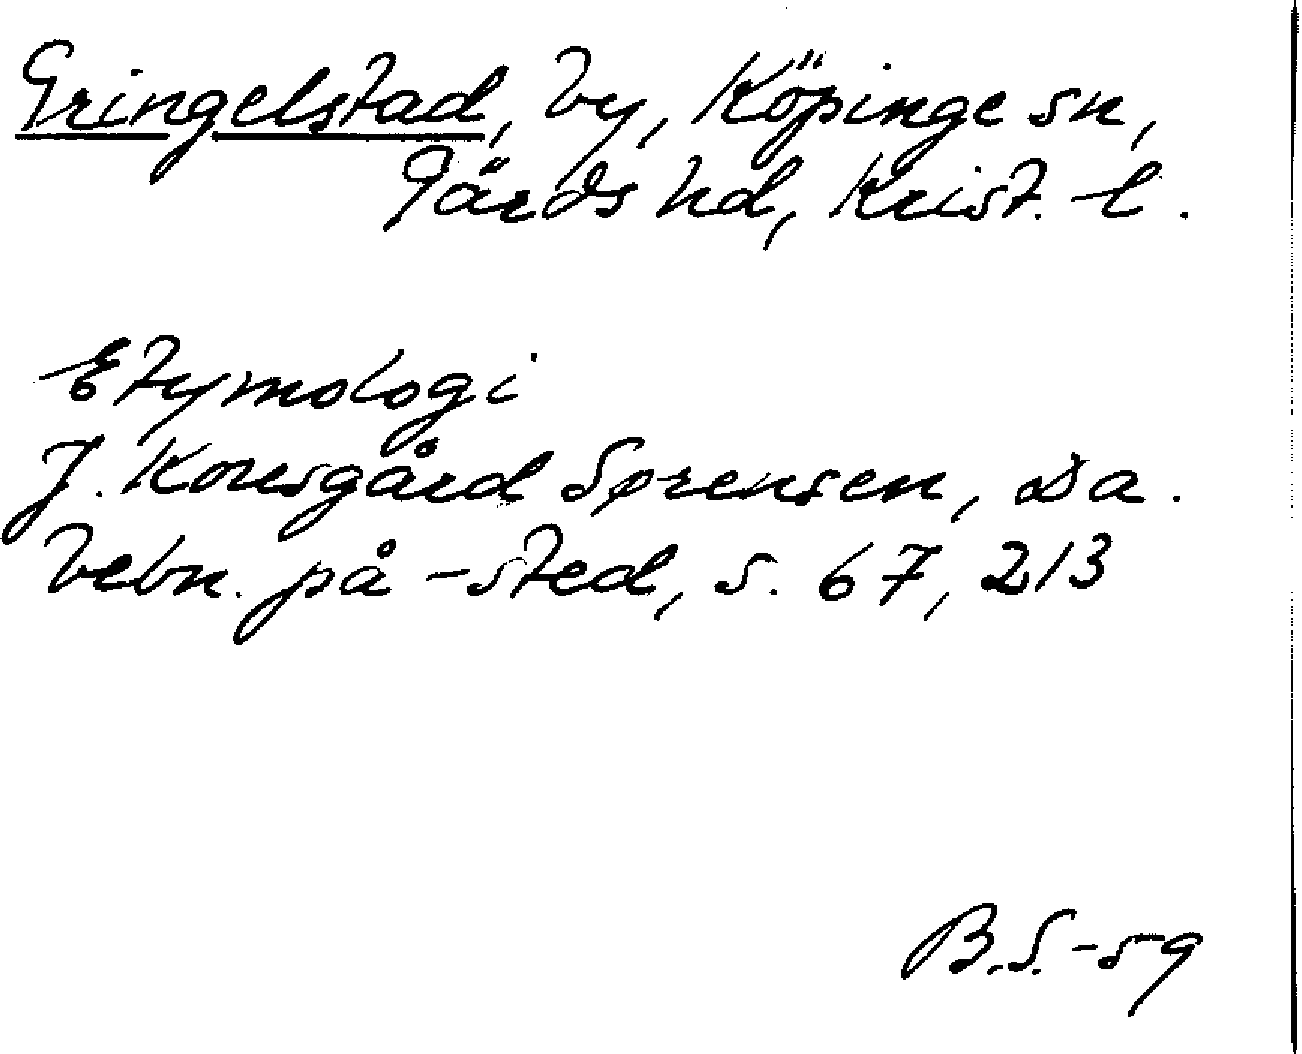 Gringelstad, by, Köpinge sn,
Gärds hd, Krist. l.
Etymologi
J. Kousgård Sørensen, Da.
bebn. på -sted, s. 67, 213
B.S.-59